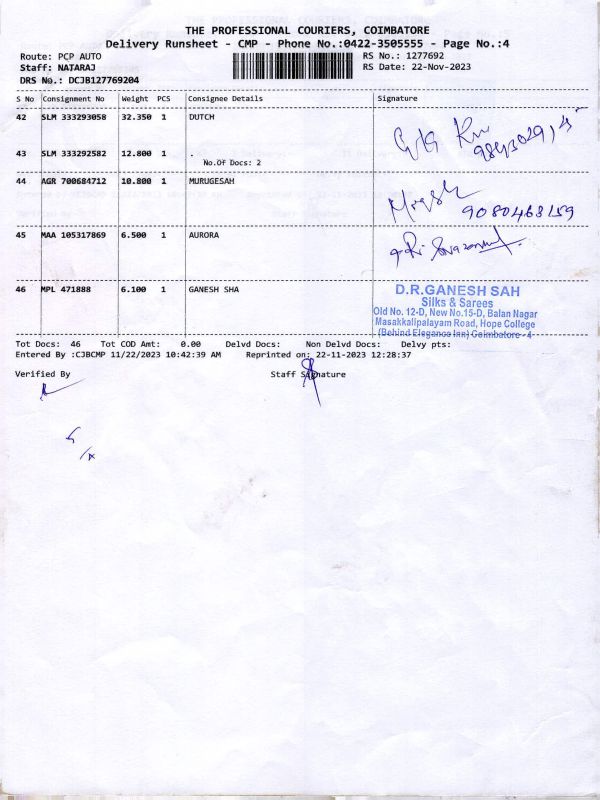 THE PROFESSIONAL COURIERS, COIMBATORE
Delivery Runsheet - CMP - Phone No.:0422-3505555 - Page No.:4
Route: PCP AUTO RS No.: 1277692
Staff: NATARAJ RS Date: 22-Nov-2023
DRS No.: DCJB127769204
S No Consignment No Weight PCS Consignee Details Signature
42 SLM 333293058 32.350 1 DUTCH
43 SLM 333292582 12.800 1 .
No.Of Docs: 2
44 AGR 700684712 10.800 1 MURUGESAH
9080463159
45 MAA 105317869 6.500 1 AURORA
46 MPL 471888 6.100 1 GANESH SHA
D.R.GANESH SAH
Silks & Sarees
Old No. 12-D, New No.15-D, Balan Nagar
Masakkalipalayam Road, Hope College
(Behind Elegance Inn) Coimbatore - 4
Tot Docs: 46 Tot COD Amt: 0.00 Delvd Docs: Non Delvd Docs: Delvy pts:
Entered By :CJBCMP 11/22/2023 10:42:39 AM Reprinted on: 22-11-2023 12:28:37
Verified By Staff Signature